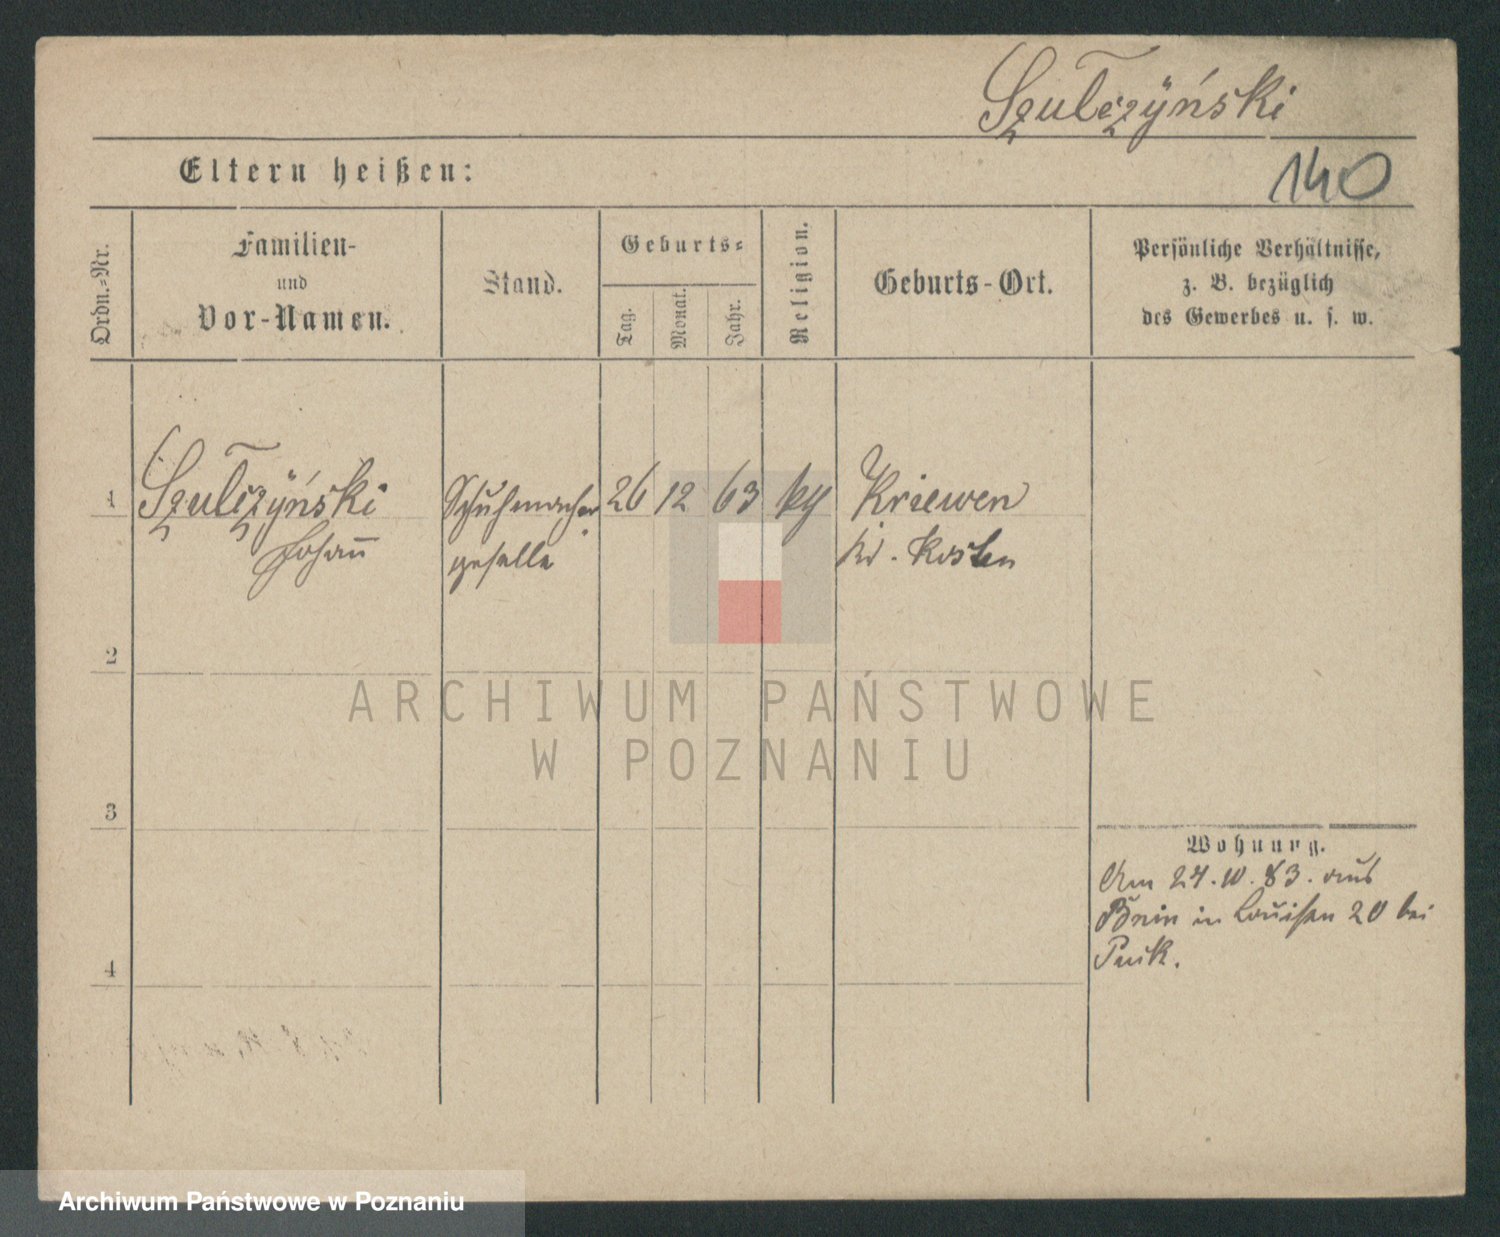 Szulczyński
140
Eltern heißen:
Ordn.-Nr.
Familien-
und
Vor-Namen.
Stand.
Geburts-
Tag.
Monat.
Jahr.
Religion.
Geburts-Ort.
Persönliche Verhältnisse,
z. B. bezüglich
des Gewerbes u. s. w.
1 Szulczyński Schuhmacher 26 12 63 kth Kriewen
Johann geselle Kr. Kosten
2
ARCHIWUM PAŃSTWOWE
W POZNANIU
3
Wohnung.
Am 24.10.83. aus
Bnin in Louisen 20 bei
4
Archiwum Państwowe w Poznaniu